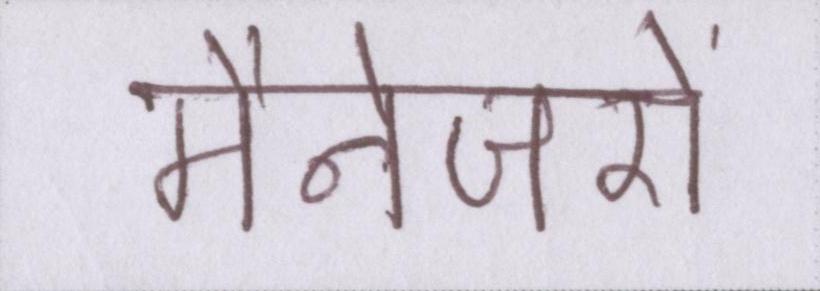 मैनेजरों